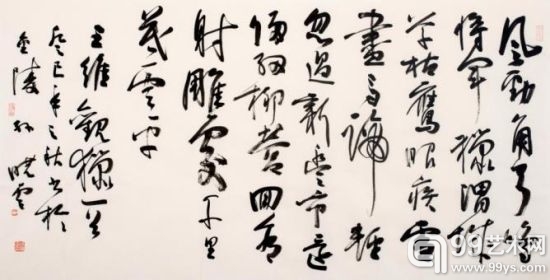 風勁角弓鳴
將軍獵渭城
草枯鷹眼疾雪
盡馬蹄輕
忽過新豐市還
歸細柳營回看
射雕處千里
暮雲平
王維觀獵一首
癸巳年之秋書於
金陵孫曉雲
99艺术网
www.99ys.com